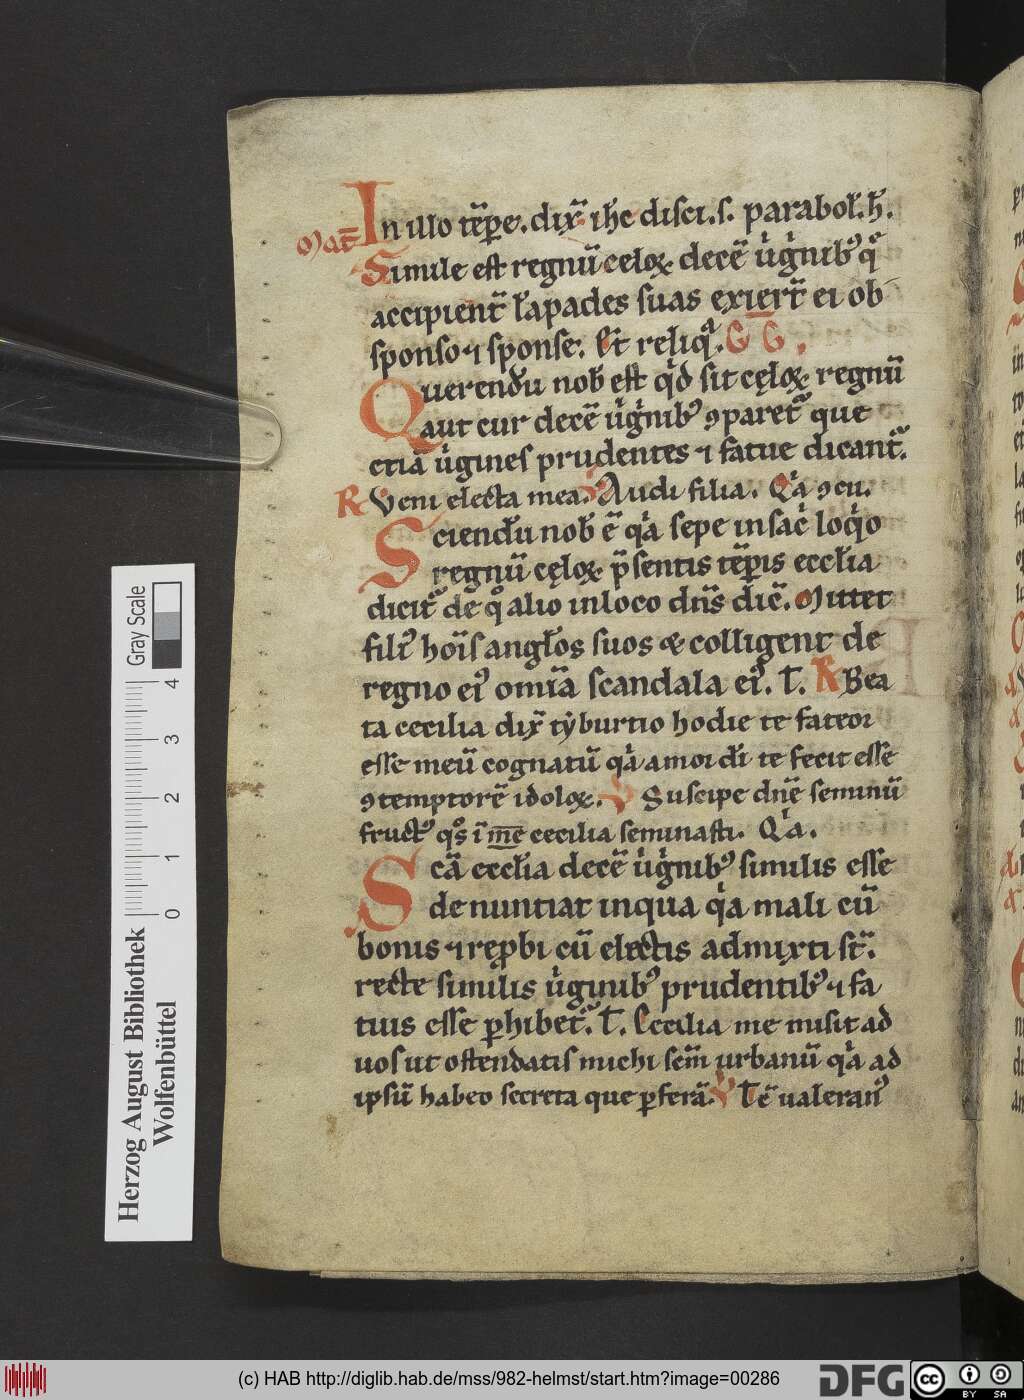 In illo tēpe. dix̄ ihc disci. s. parabol. h.
Mat̄
Simile est regnū celoꝝ decē v̓ginib᷒ q̄
accipient̄ l̄apades suas exiert̄ ei ob
sponso ⁊ sponse. Et reliq̄. G G.
Querendū nob̄ est qd̄ sit cęloꝝ regnū
aut cur decē v̓ginib᷒ ꝯparet̄ que
etiā v̓gines prudentes ⁊ fatue dicant̄.
R Veni electa mea. V Audi filia. Qⁱa ꝯcu.
Sciendū nob̄ ē qⁱa sepe in sac̄ loqⁱo
regnū cęloꝝ p̄sentis tēpis eccl̄ia
dicit̄ de qo alio in loco dn̄s dic̄. Mittet
filī hoīs angl̄os suos & colligent de
regno ei᷒ omīa scandala ei᷒. T. R Bea
ta cecilia dix̄ tyburtio hodie te fateor
esse meū cognatū qⁱa amor dī te fecit esse
ꝯtemptorē idoloꝝ. V Suscipe dn̄e seminū
fruct᷒ qos ī me cecilia seminasti. Qⁱa.
Scā eccl̄ia decē v̓ginib᷒ similis esse
denuntiat in qua qⁱa mali cū
bonis ⁊ rep̄bi cū electis admixti st̄.
recte similis v̓ginib᷒ prudentib᷒ ⁊ fa
tuis esse ꝑhibet̄. T. Cecilia me misit ad
vos ut ostendatis michi scm̄ urbanū qⁱa ad
ipsū habeo secreta que ꝑferā. V Tē valerian᷒
Gray Scale
4
3
2
1
0
Herzog August Bibliothek
Wolfenbüttel
(c) HAB http://diglib.hab.de/mss/982-helmst/start.htm?image=00286
DFG
cc
BY SA